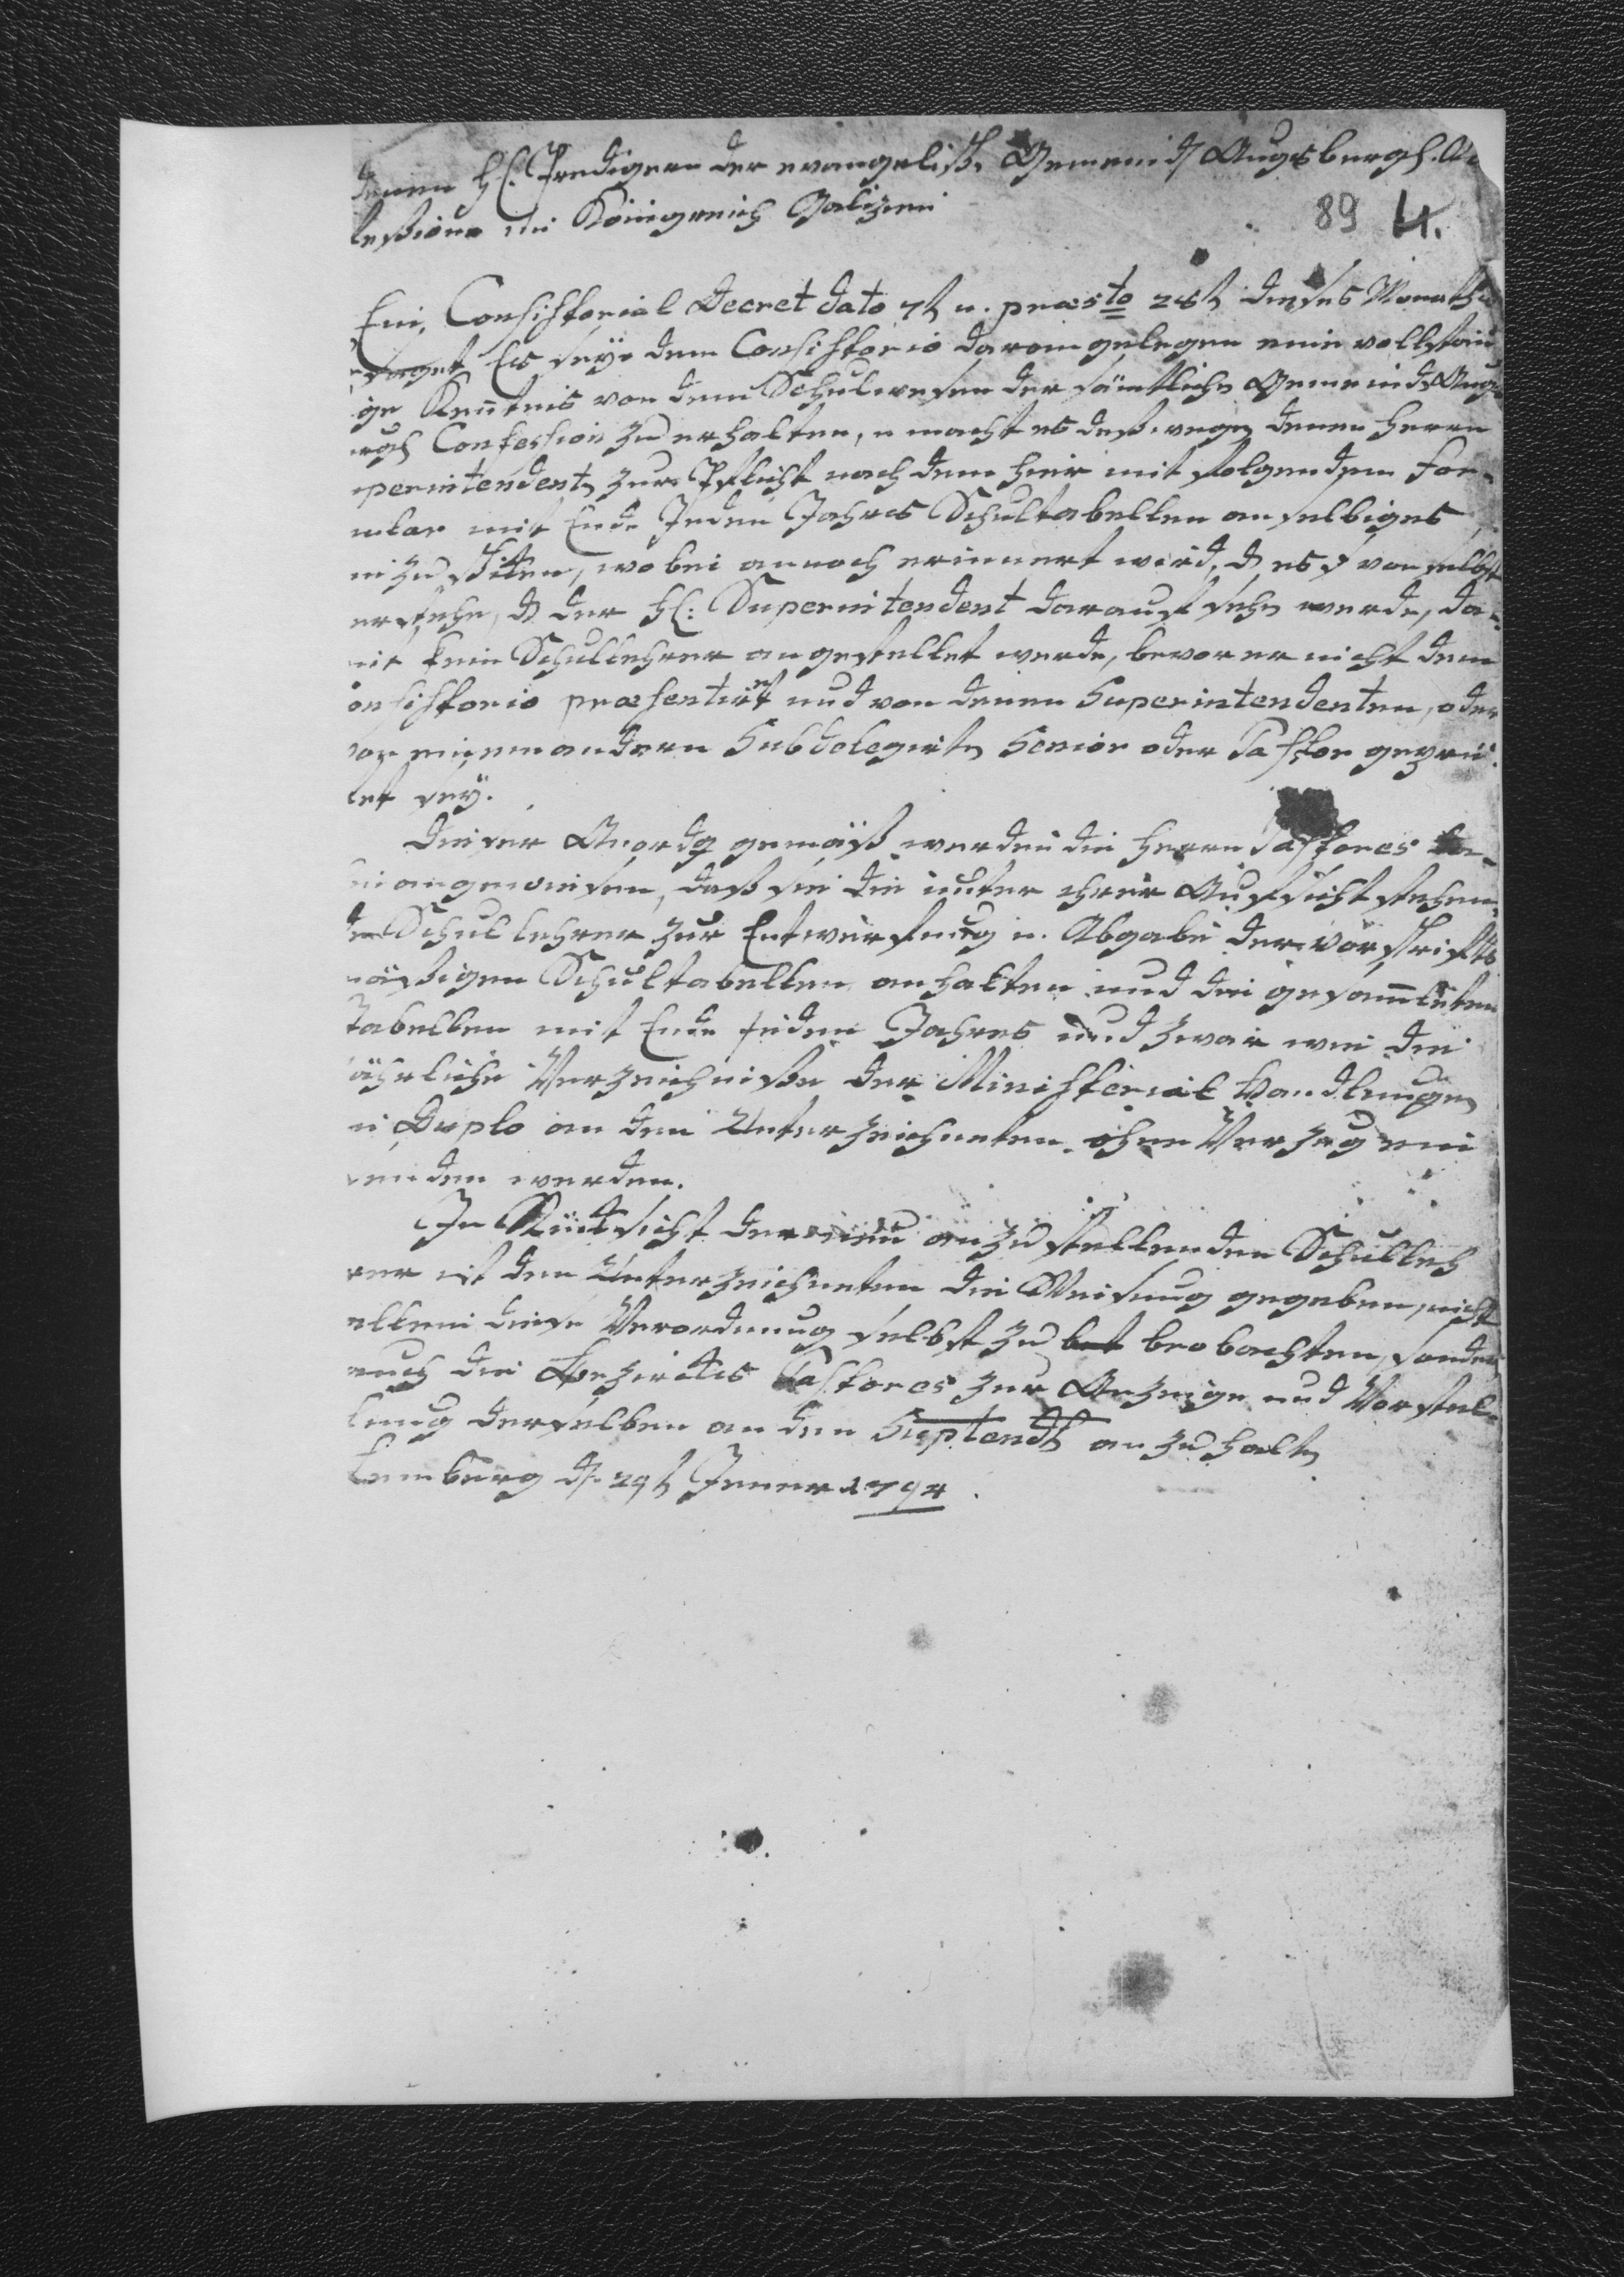 denen H. Predigern der evangelisch. Gemeind. Augsburgs. Co
feßion im Königreich Galizien
89 4.
Ein Consistorial Decret dato 7t u. præsto 28t dieses Monaths
saget Es seye dem Consistorio daran gelegen eine vollstän
ige Kentnis von dem Schulwesen der sämtlichen Gemeinden Augs
urgs Confession zu erhalten, u macht es deßwegen denen Herrn
perintendenten zur Pflicht nach dem hier mit folgendem For-
mular mit Ende Jeden Jahres Schultabellen an selbiges
einzuschiken, wobei annoch erinnert wird, daß es von selbst
verstehe, daß der H: Superintendent darauf sehen werde, da-
mit kein Schullehrer angestellet werde, bevor er nicht dem
onsistorio præsentiret und von denen Superintendenten, oder
von einem andern Subdelegirten Senior oder Pastor geprü
fet sey.
Dieser Anordg gemäß werden die Herrn Pastores
hin angewiesen, daß sie die unter ihrer Aufsicht stehen
den Schullehrer zur Entwerfung u. Abgabe der vorschrifts
mäßigen Schultabellen anhalten und die gesammleten
Tabellen mit Ende jeden Jahres und zwar wie die
jährliche Verzeichniße der Ministerial Handlungen
in Duplo an den Unterzeichneten ohne Verzug ein
senden werden.
In Rüksicht der neu anzustellenden Schulleh
rer ist dem Unterzeichneten die Weisung gegeben, nicht
allein diese Verordnung selbst zu beobachten, sondern
auch die Bezirks Pastores zur Anzeige und Vorstel-
lung derselben an den Suptendt anzuhalten
Lemberg d. 29t Jener 1794.